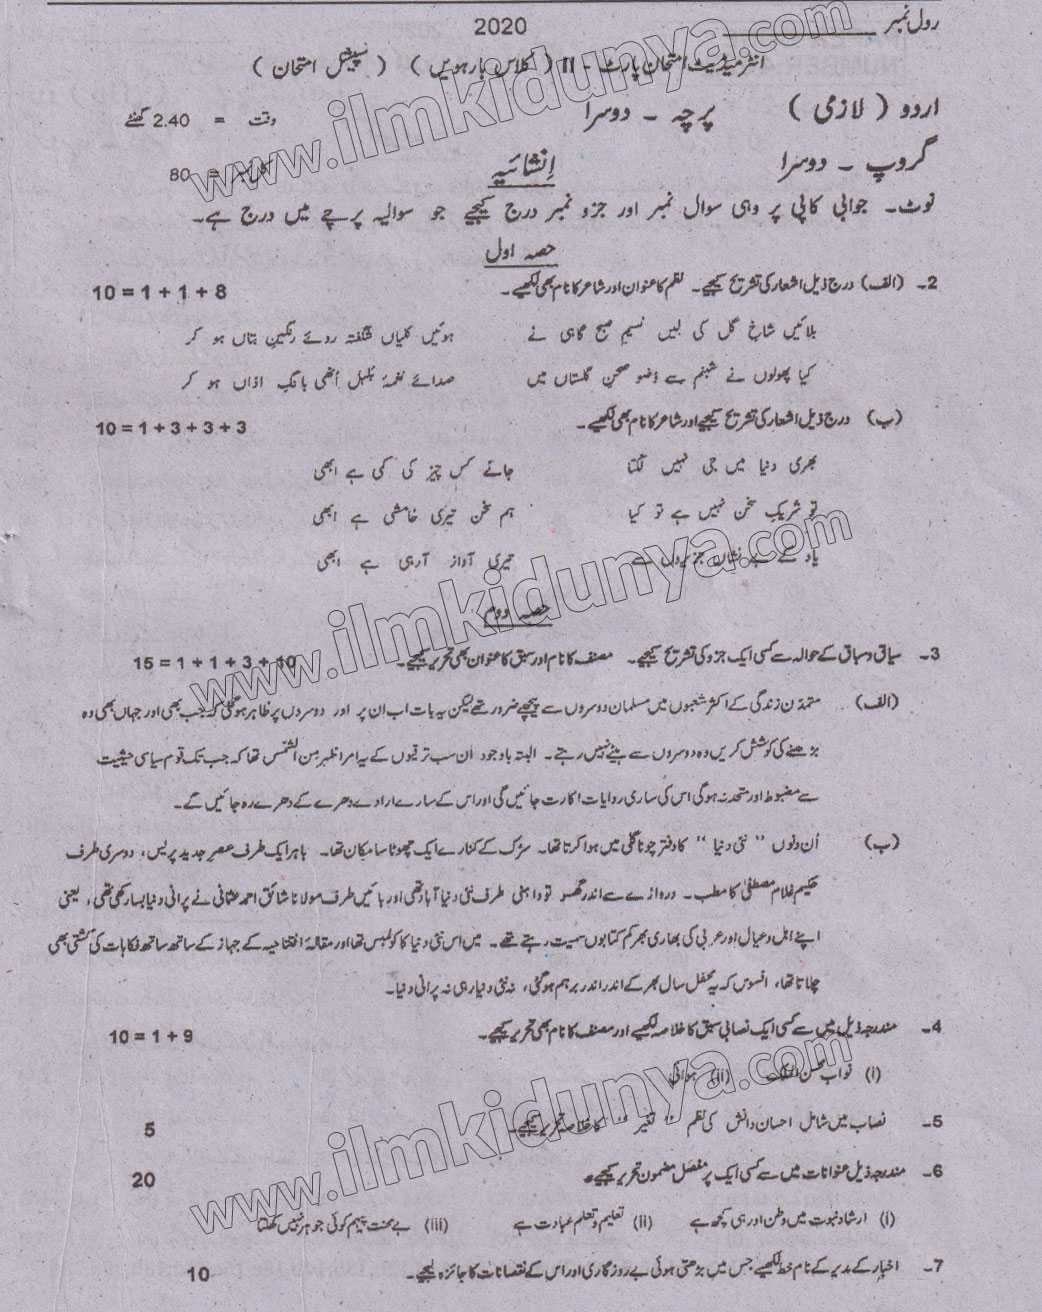 رول نمبر
2020
انٹرمیڈیٹ امتحان پارٹ - II ( کلاس بارہویں ) ( سپیشل امتحان )
اردو ( لازمی ) پرچہ - دوسرا وقت = 2.40 گھنٹے
گروپ - دوسرا اِنشائیہ کل نمبر = 80
نوٹ۔ جوابی کاپی پر وہی سوال نمبر اور جزو نمبر درج کیجیے جو سوالیہ پرچے میں درج ہے۔
حصہ اول
2۔ (الف) درج ذیل اشعار کی تشریح کیجیے۔ نظم کا عنوان اور شاعر کا نام بھی لکھیے۔ 10 = 1 + 1 + 8
بلائیں شاخِ گل کی لیں نسیمِ صبح گاہی نے ہوئیں کلیاں شگفتہ روئے رنگینِ بتاں ہو کر
کیا پھولوں نے شبنم سے وضو صحنِ گلستاں میں صدائے نغمۂ بُلبل اُٹھی بانگِ اذاں ہو کر
(ب) درج ذیل اشعار کی تشریح کیجیے اور شاعر کا نام بھی لکھیے۔ 10 = 1 + 3 + 3 + 3
بھری دنیا میں جی نہیں لگتا جانے کس چیز کی کمی ہے ابھی
تو شریکِ سخن نہیں ہے تو کیا ہم سخن تیری خامشی ہے ابھی
یاد کے بے نشاں جزیروں سے تیری آواز آرہی ہے ابھی
حصہ دوم
3۔ سیاق و سباق کے حوالہ سے کسی ایک جزو کی تشریح کیجیے۔ مصنف کا نام اور سبق کا عنوان بھی تحریر کیجیے۔ 15 = 1 + 1 + 3 + 10
(الف) متمدّن زندگی کے اکثر شعبوں میں مسلمان دوسروں سے پیچھے ضرور تھے لیکن یہ بات اب ان پر اور دوسروں پر ظاہر ہو گئی کہ جب بھی اور جہاں بھی وہ
بڑھنے کی کوشش کریں وہ دوسروں سے ہٹے نہیں رہتے۔ البتہ باوجود ان سب ترقیوں کے یہ امر اظہر مِن الشّمس تھا کہ جب تک قوم سیاسی حیثیت
سے مضبوط اور متحد نہ ہوگی اس کی ساری روایات اکارت جائیں گی اور اس کے سارے ارادے دھرے کے دھرے رہ جائیں گے۔
(ب) اُن دنوں "نئی دنیا" کا دفتر چونا گلی میں ہوا کرتا تھا۔ سڑک کے کنارے ایک چھوٹا سا مکان تھا۔ باہر ایک طرف عصرِ جدید پریس، دوسری طرف
حکیم غلام مصطفیٰ کا مطب۔ دروازے سے اندر گھسو تو داہنی طرف نئی دنیا آباد تھی اور بائیں طرف مولانا شائق احمد عثمانی نے پرانی دنیا بسا رکھی تھی، یعنی
اپنے اہل و عیال اور عربی کی بھاری بھرکم کتابوں سمیت رہتے تھے۔ میں اس نئی دنیا کا کولمبس تھا اور مقالہ افتتاحیہ کے جہاز کے ساتھ ساتھ فکاہات کی کشتی بھی
چلاتا تھا، افسوس کہ یہ محفل سال بھر کے اندر اندر برہم ہو گئی، نہ نئی دنیا رہی نہ پرانی دنیا۔
4۔ مندرجہ ذیل میں سے کسی ایک نصابی سبق کا خلاصہ لکھیے اور مصنف کا نام بھی تحریر کیجیے۔ 10 = 1 + 9
(i) نواب محسن الملک (ii) ہوائی
5۔ نصاب میں شامل احسان دانش کی نظم "تغیر" کا خلاصہ تحریر کیجیے۔ 5
6۔ مندرجہ ذیل عنوانات میں سے کسی ایک پر مفصل مضمون تحریر کیجیے۔ 20
(i) ارشادِ نبوت میں وطن اور ہی کچھ ہے (ii) تعلیم و تعلم عبادت ہے (iii) بے محنت پیہم کوئی جوہر نہیں کھلتا
7۔ اخبار کے مدیر کے نام خط لکھیے جس میں بڑھتی ہوئی بے روزگاری اور اس کے نقصانات کا جائزہ لیجیے۔ 10
www.ilmkidunya.com
www.ilmkidunya.com
www.ilmkidunya.com